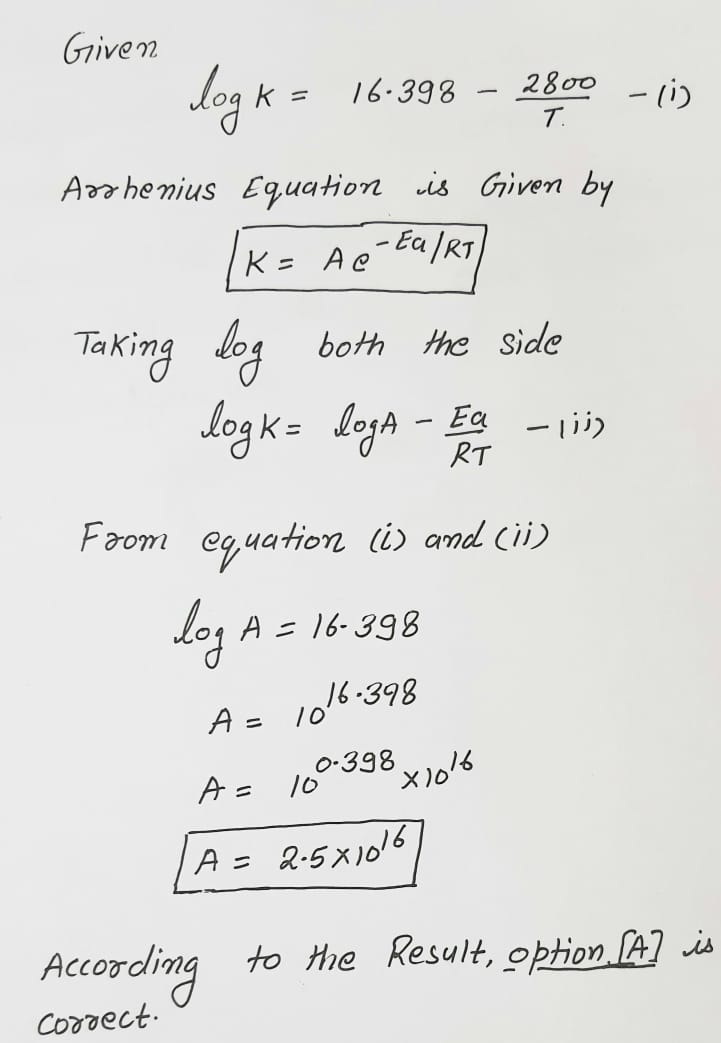 Given
log K = 16.398 - 2800/T. - (i)
Arrhenius Equation is Given by
K = Ae^-Ea/RT
Taking log both the side
log K = log A - Ea/RT - (ii)
From equation (i) and (ii)
log A = 16.398
A = 10^16.398
A = 10^0.398 × 10^16
A = 2.5 × 10^16
According to the Result, option [A] is
correct.